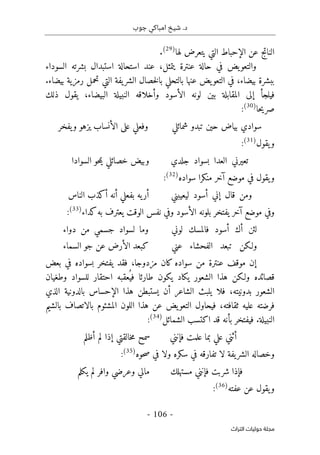 د. شيخ امباكي جوب
الناتج عن الإحباط التي يتعرض لها(29).
والتعويض في حالة عنترة يتمثل، عند استحالة استبدال بشرته السوداء
ببشرة بيضاء، في التعويض عنها بالتحلي بالخصال الشريفة التي تحمل رمزية بيضاء.
فيلجأ إلى المقابلة بين لونه الأسود وأخلاقه النبيلة البيضاء، يقول ذلك
صريحا(30):
سوادي بياض حين تبدو شمائلي وفعلي على الأنساب يزهو ويفخر
ويقول(31):
تعيرني العدا بسواد جلدي وبيض خصائلي تمحو السوادا
ويقول في موضع آخر منكرا سواده(32):
ومن قال إني أسود ليعيبني أريه بفعلي أنه أكذب الناس
وفي موضع آخر يفتخر بلونه الأسود وفي نفس الوقت يعترف به كداء(33):
لئن أك أسود فالمسك لوني وما لسواد جسمي من دواء
ولكن تبعد الفحشاء عني كبعد الأرض عن جو السماء
إن موقف عنترة من سواده كان مزدوجا، فقد يفتخر بسواده في بعض
قصائده ولكن هذا الشعور يكاد يكون طارئا فيُعقبه احتقار للسواد وطغيان
الشعور بدونيته، فلا يلبث الشاعر أن يستبطن هذا الإحساس بالدونية الذي
فرضته عليه ثقافته، فيحاول التعويض عن هذا اللون المشئوم بالاتصاف بالشيم
النبيلة. فيفتخر بأنه قد اكتسب الشمائل(34):
أثني علي بما علمت فإنني سمح مخالقتي إذا لم أظلم
وخصاله الشريفة لا تفارقه في سكره ولا في صحوه(35):
فإذا شربت فإنني مستهلك مالي وعرضي وافر لم يكلم
ويقول عن عفته(36):
- 106 -
مجلة حوليات التراث